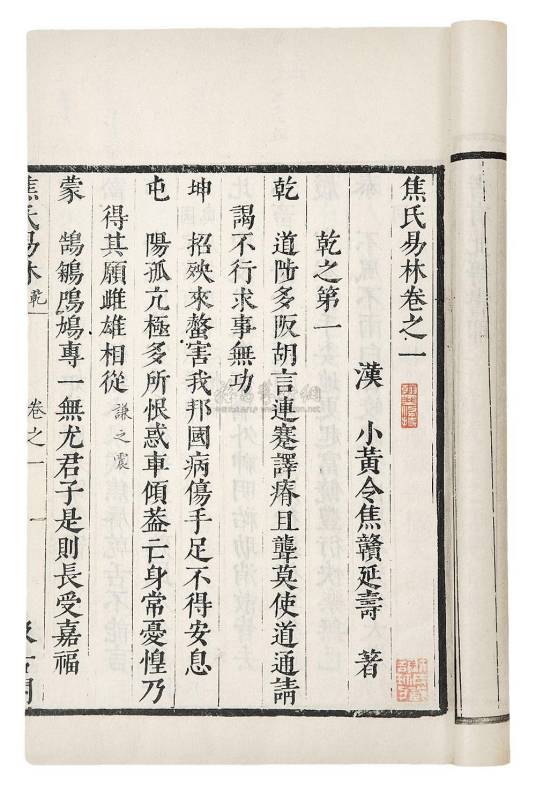 焦氏易林卷之一
漢 小黃令焦贛延壽 著
乾之第一
乾 道陟多阪胡言連蹇譯瘠且聾莫使道通請
謁不行求事無功
坤 招殃來螫害我邦國病傷手足不得安息
屯 陽孤亢極多所恨惑車傾葢亡身常憂惶乃
得其願雌雄相從 謙之震
蒙 鵠鵴鳲鳩專一無尤君子是則長受嘉福
焦氏易林 乾 卷之一 一